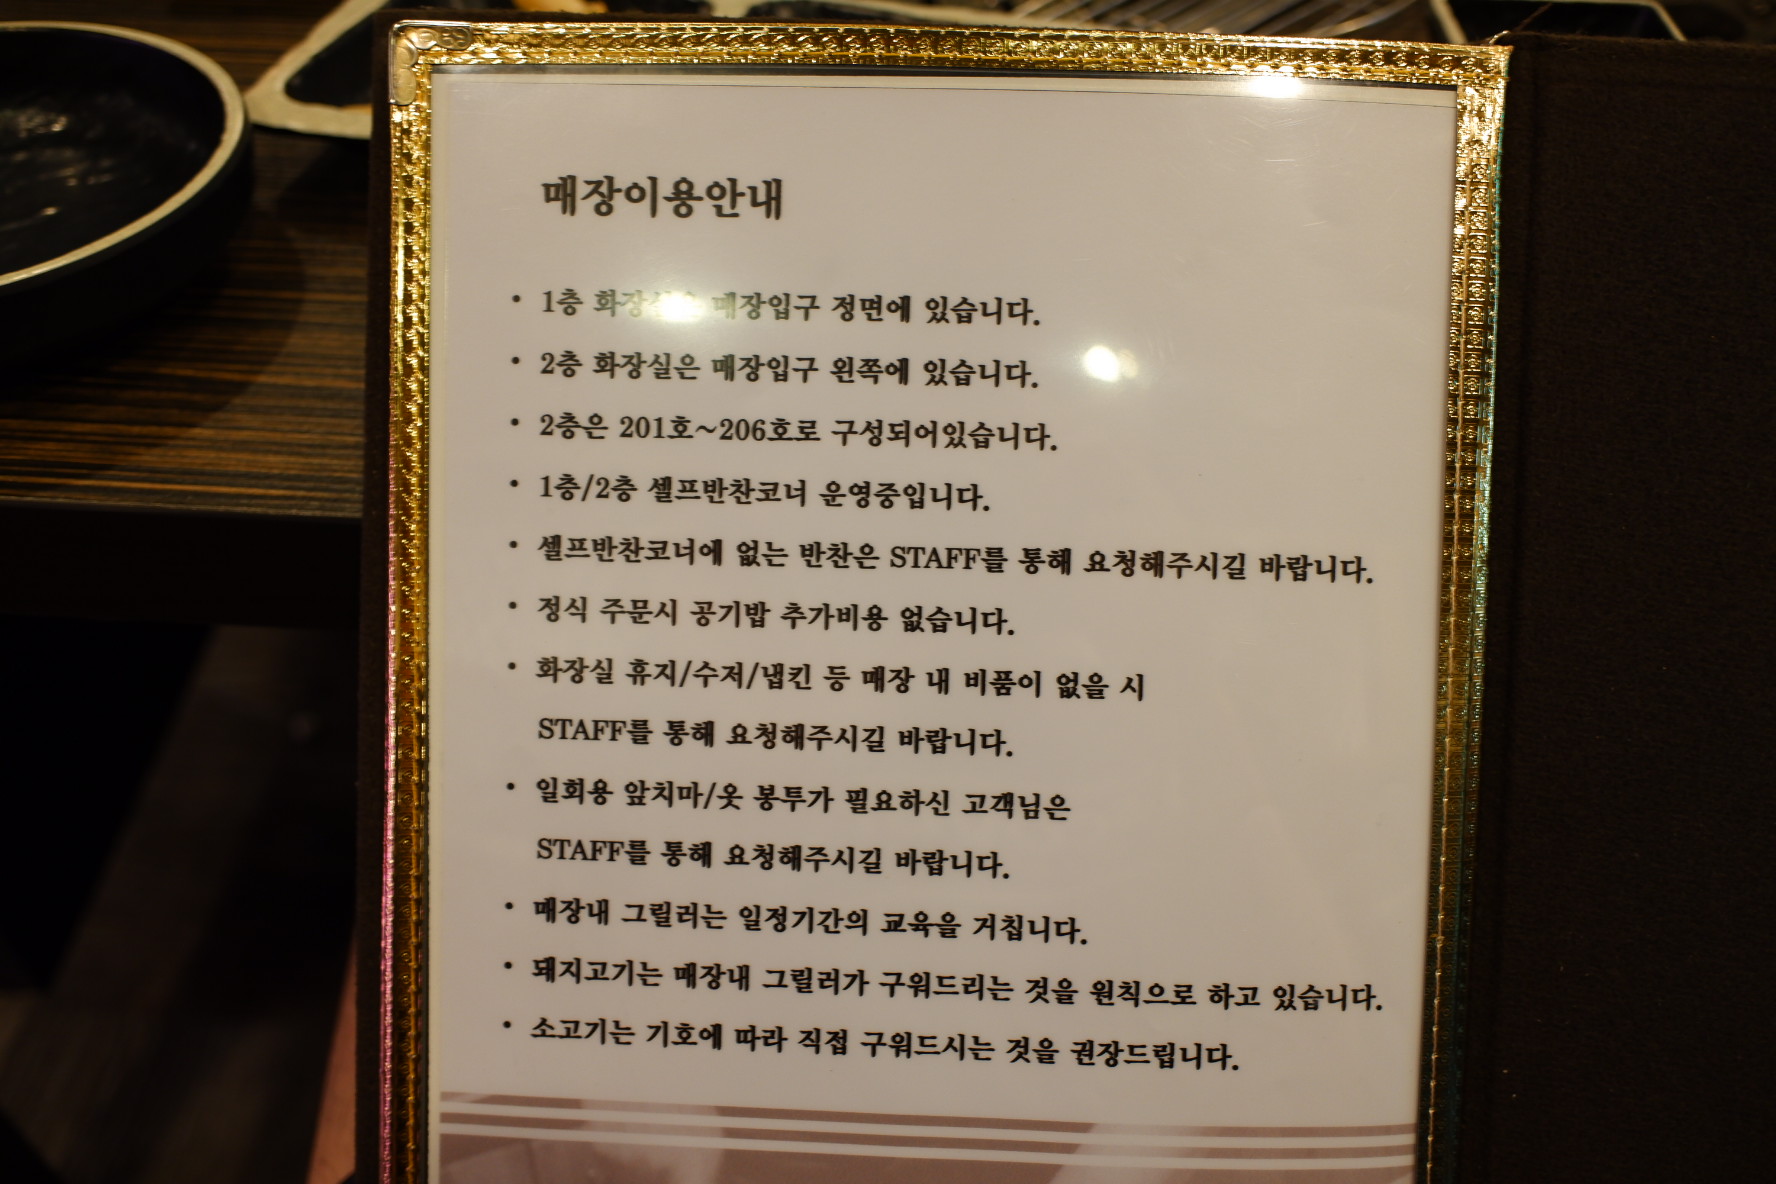 매장이용안내
• 1층 화장실은 매장입구 정면에 있습니다.
• 2층 화장실은 매장입구 왼쪽에 있습니다.
• 2층은 201호~206호로 구성되어있습니다.
• 1층/2층 셀프반찬코너 운영중입니다.
• 셀프반찬코너에 없는 반찬은 STAFF를 통해 요청해주시길 바랍니다.
• 정식 주문시 공기밥 추가비용 없습니다.
• 화장실 휴지/수저/냅킨 등 매장 내 비품이 없을 시
STAFF를 통해 요청해주시길 바랍니다.
• 일회용 앞치마/옷 봉투가 필요하신 고객님은
STAFF를 통해 요청해주시길 바랍니다.
• 매장내 그릴러는 일정기간의 교육을 거칩니다.
• 돼지고기는 매장내 그릴러가 구워드리는 것을 원칙으로 하고 있습니다.
• 소고기는 기호에 따라 직접 구워드시는 것을 권장드립니다.